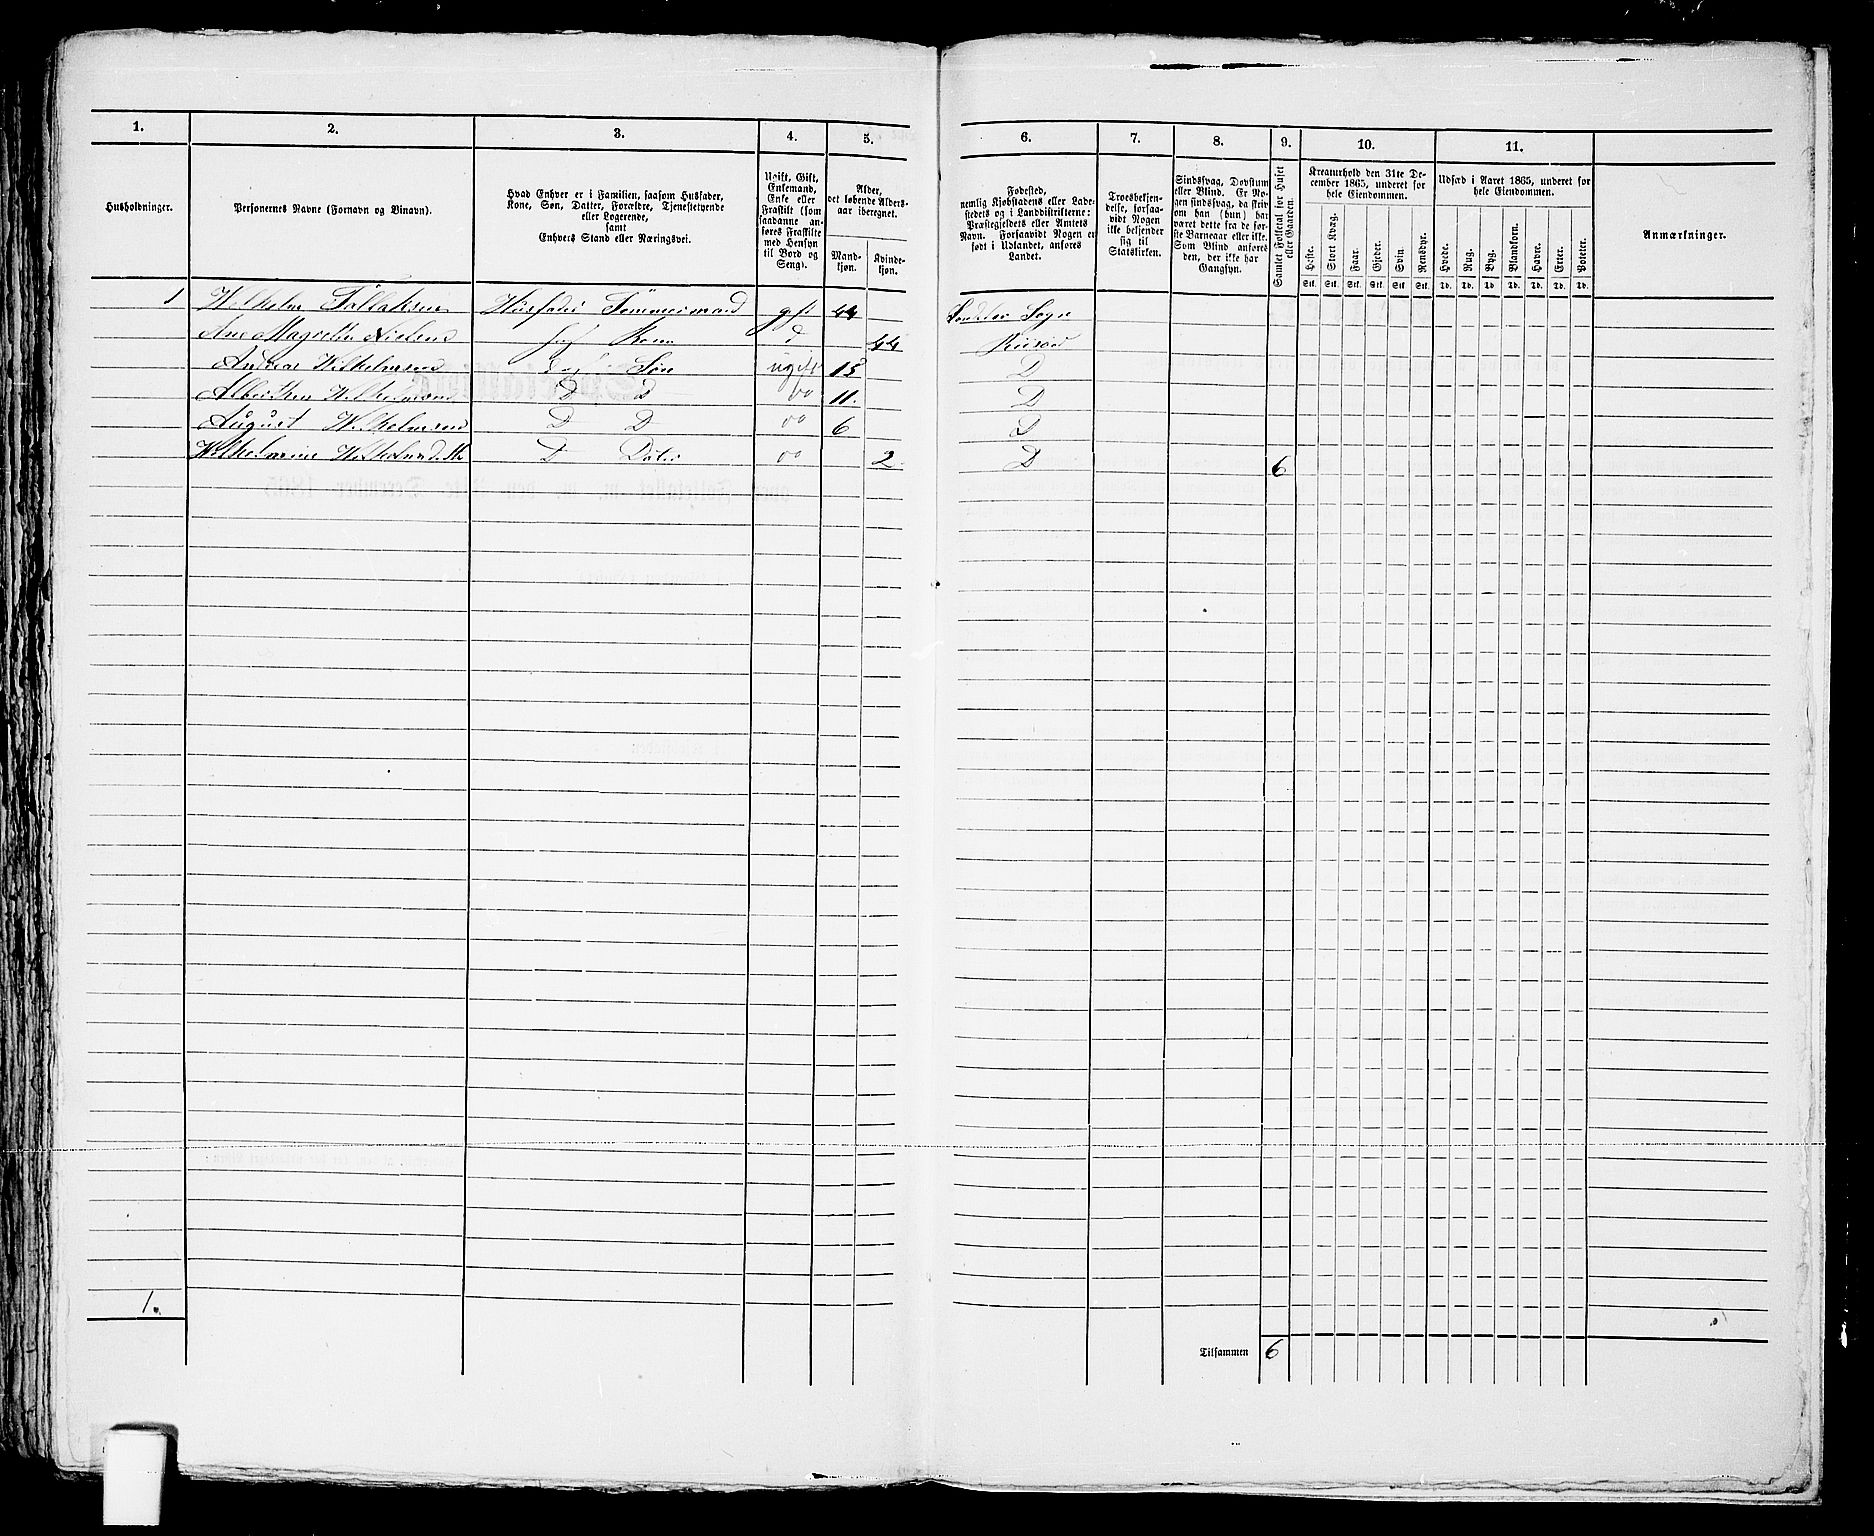 1. 2. 3. 4. 5. 6. 7. 8. 9. 10. 11.
Husholdninger.
Personernes Navne (Fornavn og Binavn).
Hvad Enhver er i Familien, saasom Husfader,
Kone, Søn, Datter, Forældre, Tjenestetyende
eller Logerende,
samt
Enhvers Stand eller Næringsvei.
Ugift, Gift,
Enkemand,
Enke eller
Fraskilt (som
saadanne an-
føres Fraskilte
med Hensyn
til Bord og
Seng).
Alder,
det løbende Alders-
aar iberegnet.
Mand-
kjøn.
Kvinde-
kjøn.
Fødested,
nemlig Kjøbstadens eller Lade-
stedets og i Landdistrikterne:
Præstegjeldets eller Amtets
Navn. Forsaavidt Nogen er
født i Udlandet, anføres
Landet.
Troesbekjen-
delse, forsaa-
vidt Nogen
ikke bekjender
sig til
Statskirken.
Sindssvag, Døvstum
eller Blind. Er No-
gen sindssvag, da skriv
om han (hun) har
været dette fra de før-
ste Barneaar eller ikke.
Som Blind anføres
den, der ikke har
Gangsyn.
Samlet Folketal for Huset
eller Gaarden.
Kreaturhold den 31te De-
cember 1865, underet for
hele Eiendommen.
Heste. Stort Kvæg. Faar. Gjeder. Svin. Rensdyr.
Stk. Stk. Stk. Stk. Stk. Stk.
Udsæd i Aaret 1865, underet for
hele Eiendommen.
Hvede. Rug. Byg. Blandkorn. Havre. Erter. Poteter.
Td. Td. Td. Td. Td. Td. Td.
Anmærkninger.
1 Wilhelm Tallaksen Husfader Tømmermand gift 44 Sogn
Ane Magrethe Nielsen Kone D 44 Riisøer
Andreas Wilhelmsen Søn ugift 15 D
Wilhelmsen D D oo 11. D
August Wilhelmsen D D oo 6 D
Wilhelmine D oo 2 D 6
1.
Tilsammen 6